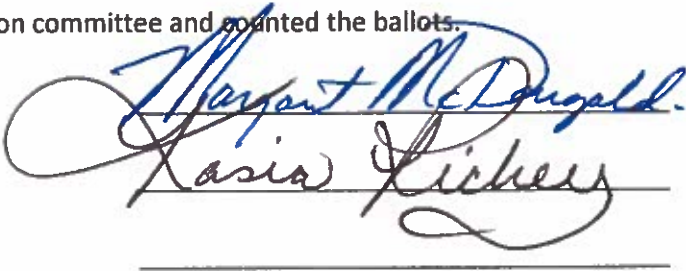 on committee and counted the ballots.
Margaret McDougald.
Kasia Richey